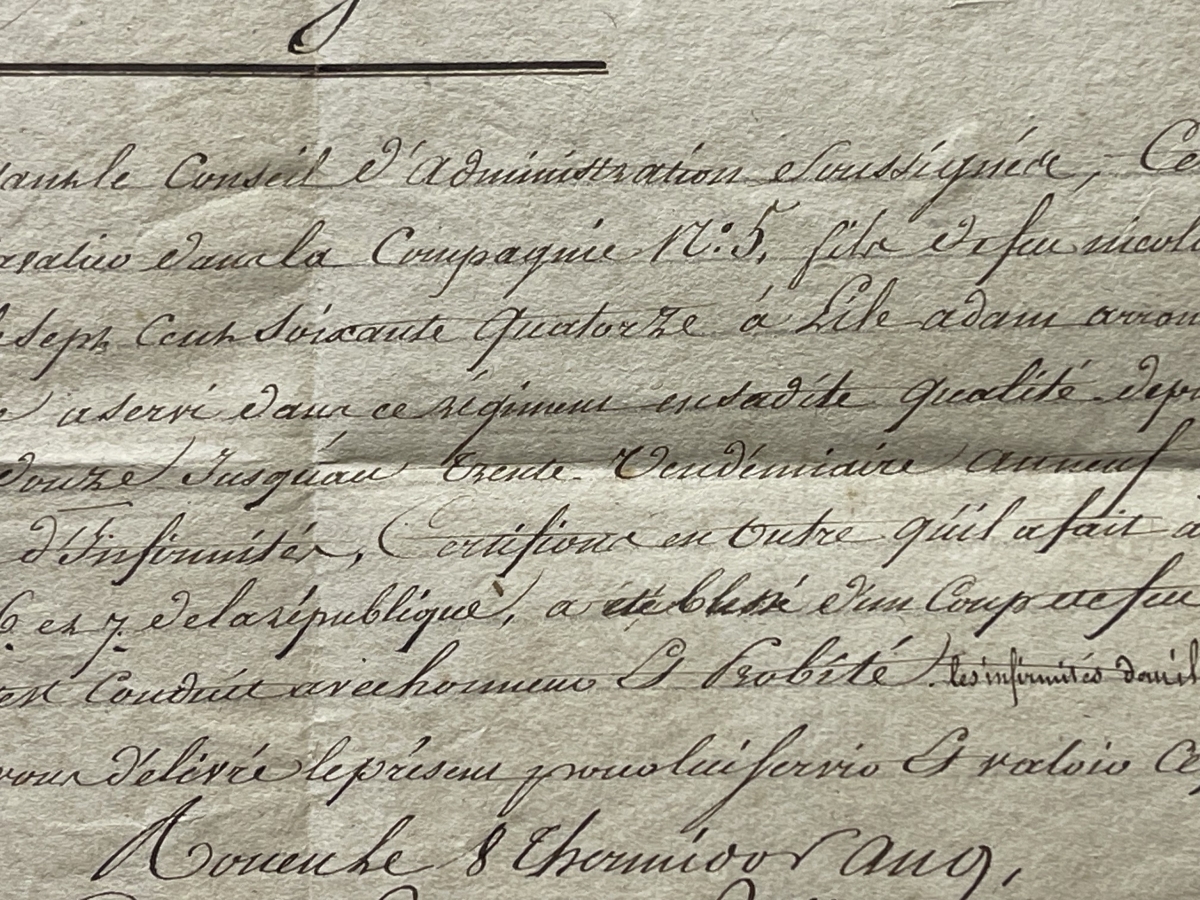 le Conseil d'Administration Soussignée, Ce
dans la Compagnie N.o 5, fils de feu nicol
Sept Cent Soixante Quatorze á Lile adam arron
a servi dans ce régiment en sadite qualité dep
douze Jusqu'au trente Vendémiaire an neuf
d'Infirmités, Certifions en Outre qu'il a fait
6 et 7. de la république, a été blessé d'un Coup de feu
est Conduit avec honneur Et Probité. les infirmités dont il
délivré le présent pour lui servir Et valoir Ce
Rouen Le 8 Thermidor an 9,